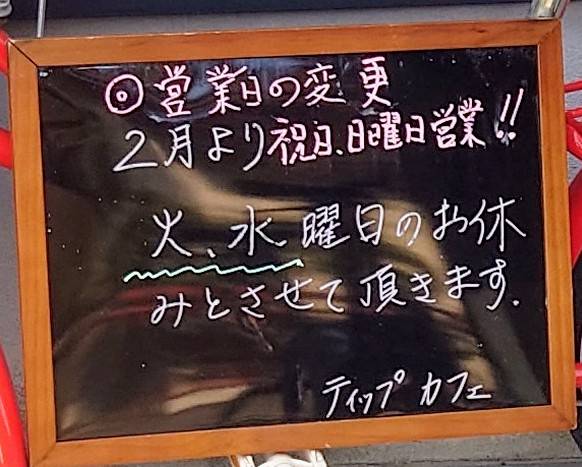 ◎営業日の変更
2月より祝日、日曜日営業!!
火、水曜日のお休
みとさせて頂きます.
ティップ カフェ